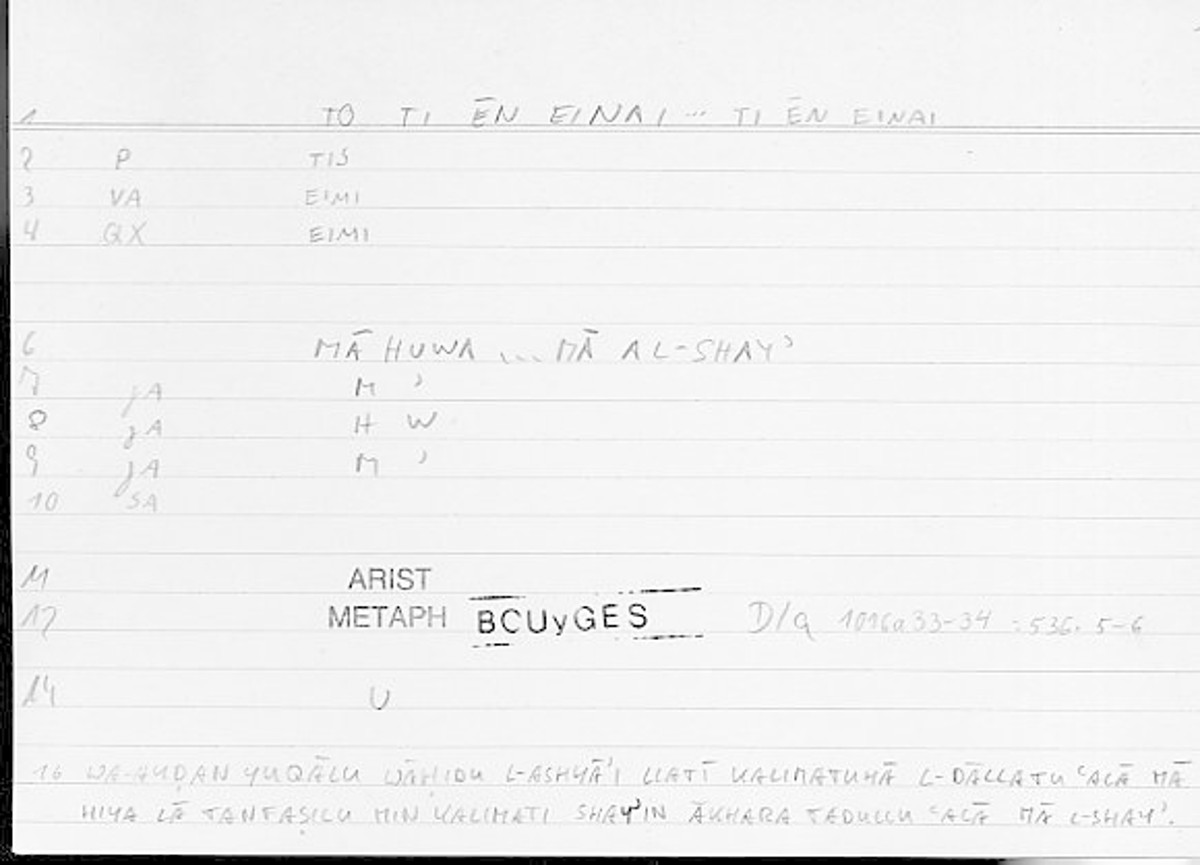 1 TO TI ĒN EINAI ... TI ĒN EINAI
2 P TIS
3 VA EIMI
4 QX EIMI
6 MĀ HUWA ... MĀ AL-SHAY'
7 jA M '
8 jA H W
9 jA M '
10 SA
11 ARIST
12 METAPH BCUyGES D/a 1016a33-34 : 536. 5-6
14 U
16 WA-AYḌAN YUQĀLU WĀḤIDU L-ASHYĀ'I LLATĪ KALIMATUHĀ L-DĀLLATU ‘ALĀ MĀ
HIYA LĀ TANFAṢILU MIN KALIMATI SHAY'IN ĀKHARA TADULLU ‘ALĀ MĀ L-SHAY'.